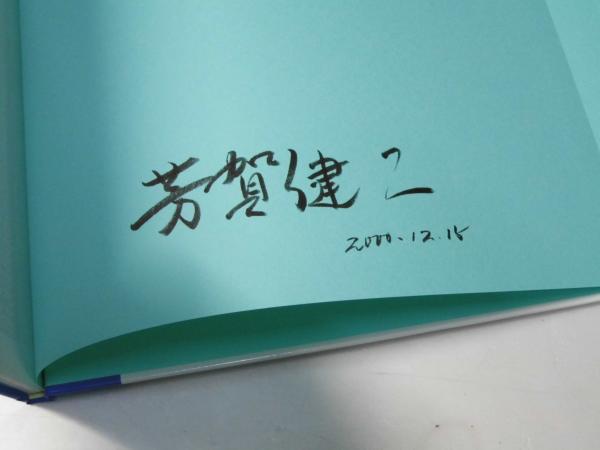 芳賀健二
2000.12.15